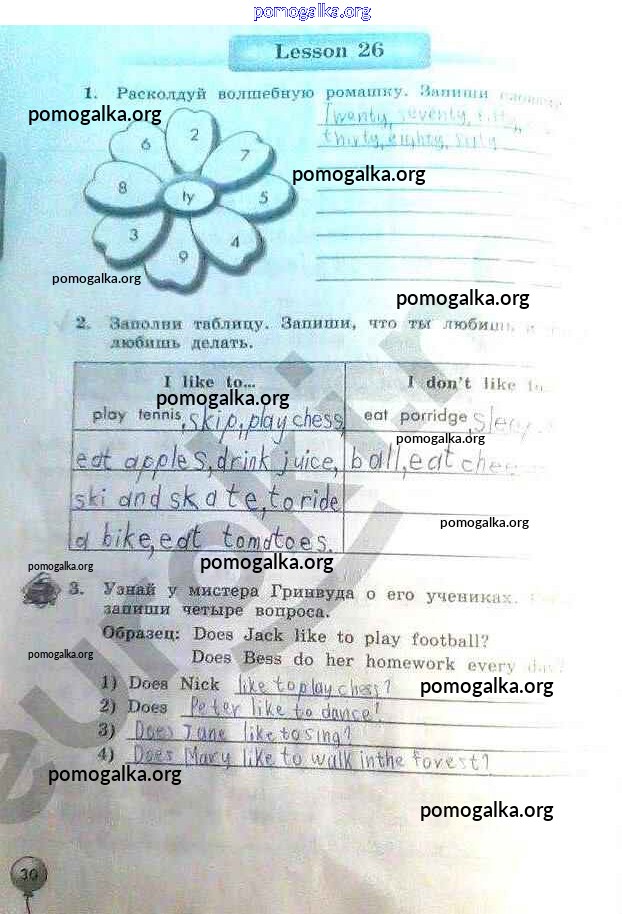 pomogalka.org
Lesson 26
1. Расколдуй волшебную ромашку. Запиши
pomogalka.org
Twenty, seventy, fifty,
thirty, eighty, sixty
6 2 7
8 ty 5
3 9 4
pomogalka.org
pomogalka.org
pomogalka.org
2. Заполни таблицу. Запиши, что ты любишь и
любишь делать.
I like to... I don't like to
pomogalka.org
play tennis, skip, play chess, eat porridge, sleep
pomogalka.org
eat apples, drink juice, ball, eat
ski and skate, to ride
pomogalka.org
a bike, eat tomatoes.
pomogalka.org
pomogalka.org
3. Узнай у мистера Гринвуда о его учениках.
запиши четыре вопроса.
Образец: Does Jack like to play football?
pomogalka.org
Does Bess do her homework every day?
1) Does Nick like to play chess?
pomogalka.org
2) Does Peter like to dance?
3) Does Jane like to sing?
4) Does Mary like to walk in the forest?
pomogalka.org
pomogalka.org
30
euroki